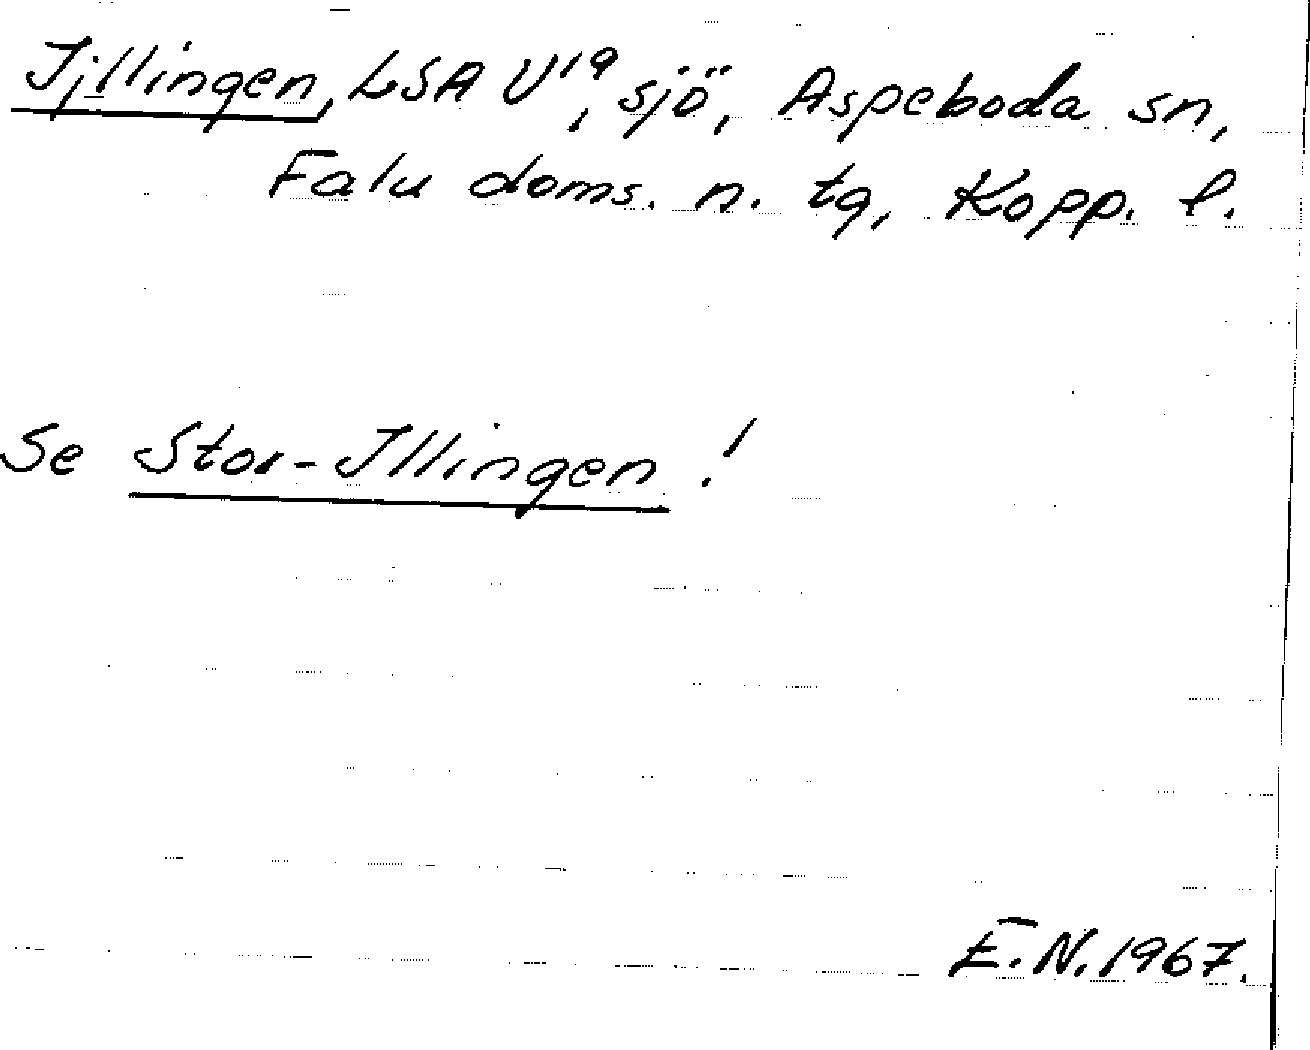 Ijllingen, LSA U¹⁹, sjö, Aspeboda sn,
Falu doms. n. tg, Kopp. l.
Se Stor-Illingen!
E.N. 1967.